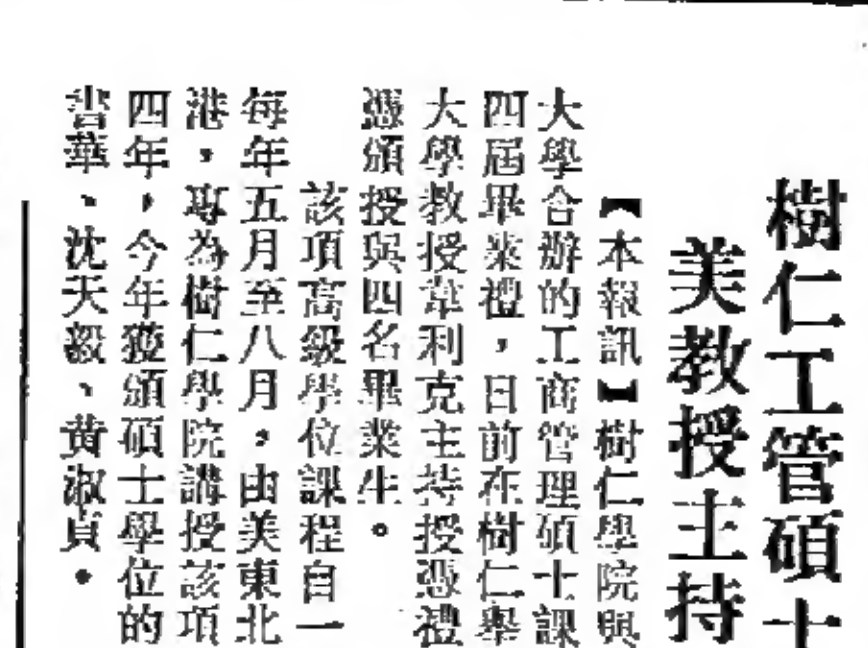 樹仁工管碩士
美教授主持
【本報訊】樹仁學院與
大學合辦的工商管理碩士課
四屆畢業禮，日前在樹仁舉
大學教授韋利克主持授憑禮
憑頒授與四名畢業生。
該項高級學位課程自一
每年五月至八月，由美東北
港，專為樹仁學院講授該項
四年，今年獲頒碩士學位的
書華、沈天毅、黃淑貞。